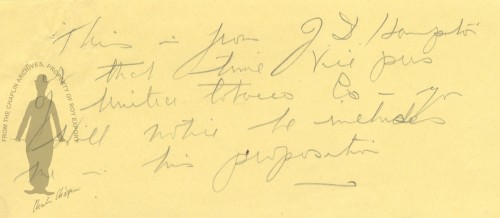 This – from J D Hampton
that time Vice pres
of United Tobacco Co – you
will notice he includes
me – in his proposation
FROM THE CHAPLIN ARCHIVES, PROPERTY OF ROY EXPORT
Charlie Chaplin